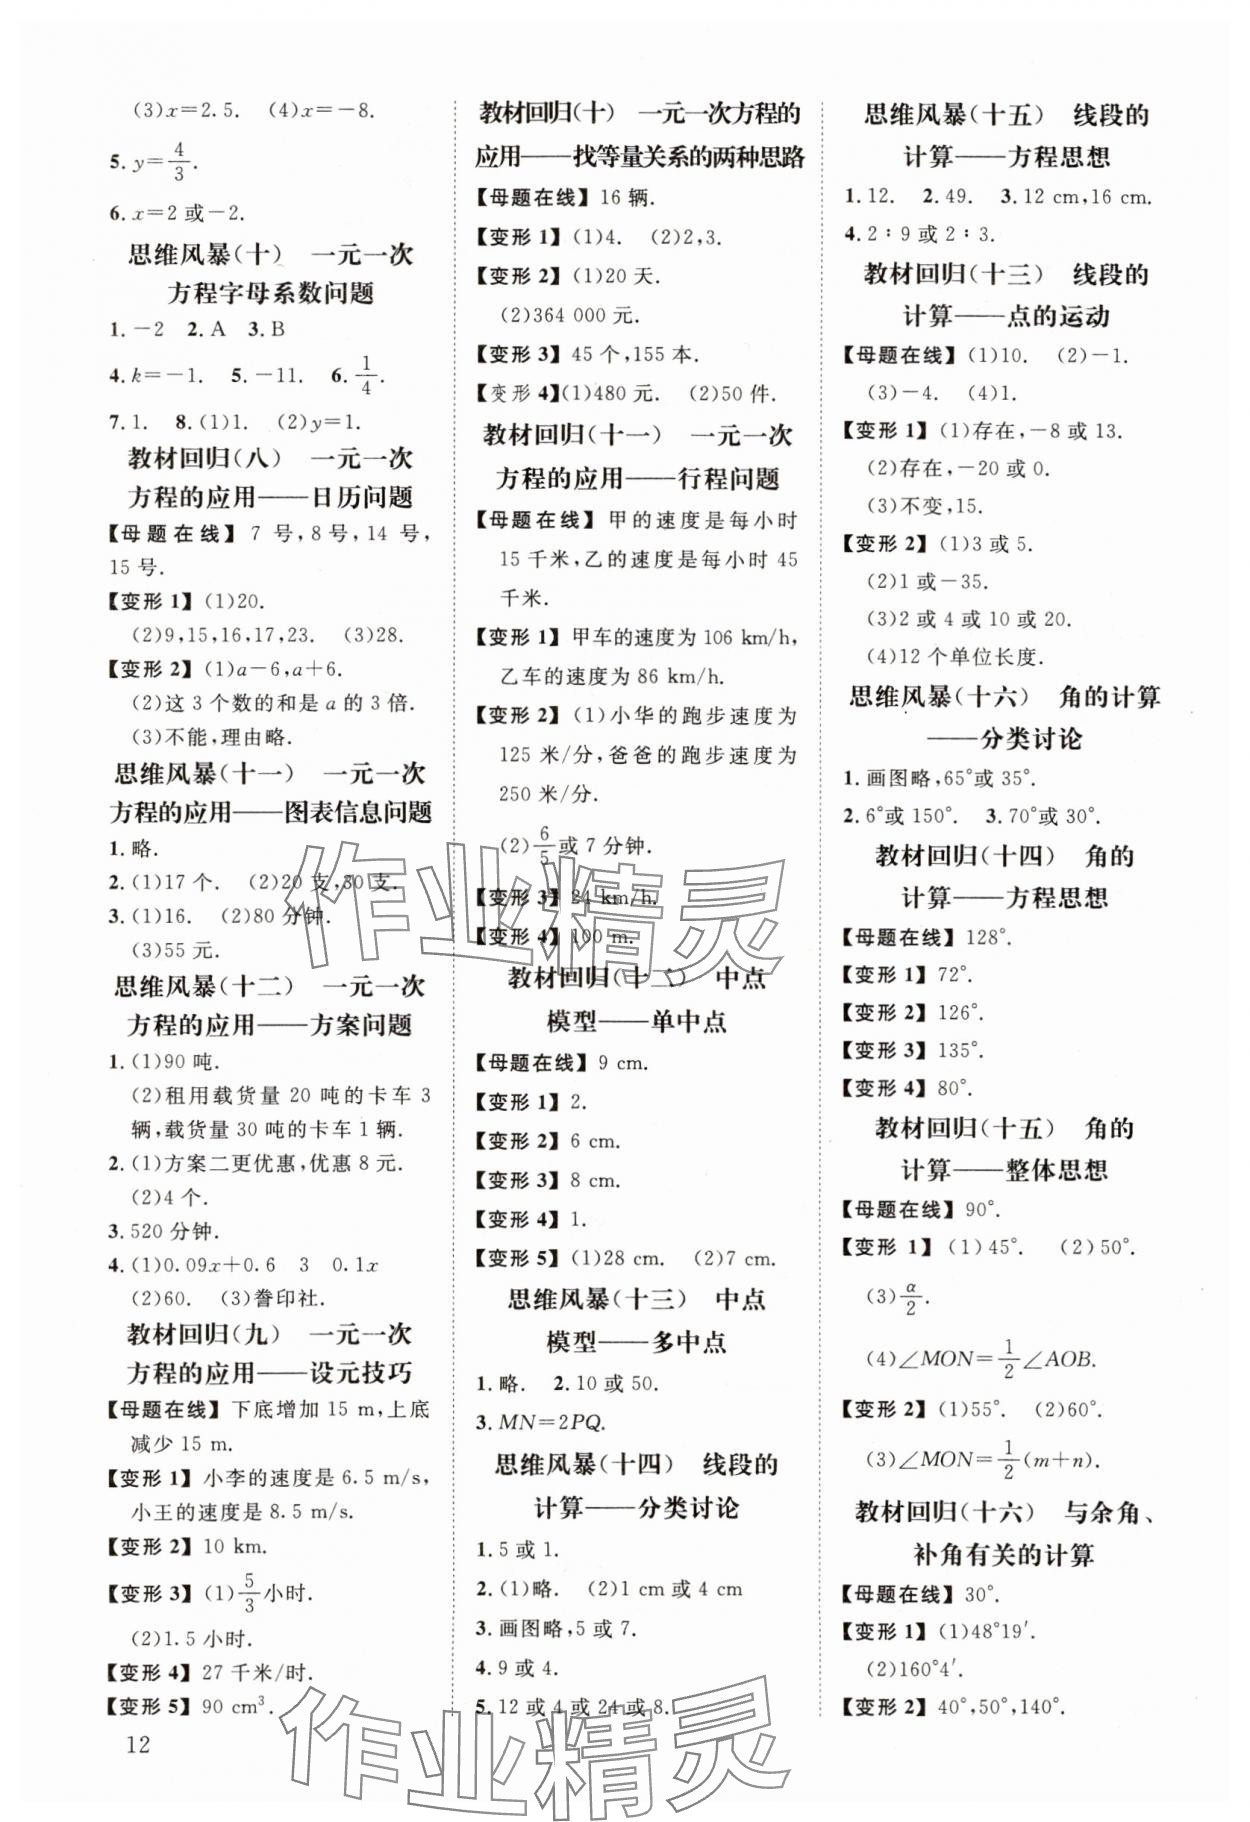 (3)x=2.5. (4)x=-8.
5. y=4/3.
6. x=2或-2.
思维风暴(十) 一元一次
方程字母系数问题
1. -2 2. A 3. B
4. k=-1. 5. -11. 6. 1/4.
7. 1. 8. (1)1. (2)y=1.
教材回归(八) 一元一次
方程的应用——日历问题
【母题在线】7号,8号,14号,
15号.
【变形1】(1)20.
(2)9,15,16,17,23. (3)28.
【变形2】(1)a-6,a+6.
(2)这3个数的和是a的3倍.
(3)不能,理由略.
思维风暴(十一) 一元一次
方程的应用——图表信息问题
1. 略.
2. (1)17个. (2)20支,30支.
3. (1)16. (2)80分钟.
(3)55元.
思维风暴(十二) 一元一次
方程的应用——方案问题
1. (1)90吨.
(2)租用载货量20吨的卡车3
辆,载货量30吨的卡车1辆.
2. (1)方案二更优惠,优惠8元.
(2)4个.
3. 520分钟.
4. (1)0.09x+0.6 3 0.1x
(2)60. (3)誊印社.
教材回归(九) 一元一次
方程的应用——设元技巧
【母题在线】下底增加15 m,上底
减少15 m.
【变形1】小李的速度是6.5 m/s,
小王的速度是8.5 m/s.
【变形2】10 km.
【变形3】(1)5/3小时.
(2)1.5小时.
【变形4】27千米/时.
【变形5】90 cm³.
12
教材回归(十) 一元一次方程的
应用——找等量关系的两种思路
【母题在线】16辆.
【变形1】(1)4. (2)2,3.
【变形2】(1)20天.
(2)364 000元.
【变形3】45个,155本.
【变形4】(1)480元. (2)50件.
教材回归(十一) 一元一次
方程的应用——行程问题
【母题在线】甲的速度是每小时
15千米,乙的速度是每小时45
千米.
【变形1】甲车的速度为106 km/h,
乙车的速度为86 km/h.
【变形2】(1)小华的跑步速度为
125米/分,爸爸的跑步速度为
250米/分.
(2)6/5或7分钟.
【变形3】24 km/h.
【变形4】100 m.
教材回归(十二) 中点
模型——单中点
【母题在线】9 cm.
【变形1】2.
【变形2】6 cm.
【变形3】8 cm.
【变形4】1.
【变形5】(1)28 cm. (2)7 cm.
思维风暴(十三) 中点
模型——多中点
1. 略. 2. 10或50.
3. MN=2PQ.
思维风暴(十四) 线段的
计算——分类讨论
1. 5或1.
2. (1)略. (2)1 cm或4 cm
3. 画图略,5或7.
4. 9或4.
5. 12或4或24或8.
思维风暴(十五) 线段的
计算——方程思想
1. 12. 2. 49. 3. 12 cm,16 cm.
4. 2∶9或2∶3.
教材回归(十三) 线段的
计算——点的运动
【母题在线】(1)10. (2)-1.
(3)-4. (4)1.
【变形1】(1)存在,-8或13.
(2)存在,-20或0.
(3)不变,15.
【变形2】(1)3或5.
(2)1或-35.
(3)2或4或10或20.
(4)12个单位长度.
思维风暴(十六) 角的计算
——分类讨论
1. 画图略,65°或35°.
2. 6°或150°. 3. 70°或30°.
教材回归(十四) 角的
计算——方程思想
【母题在线】128°.
【变形1】72°.
【变形2】126°.
【变形3】135°.
【变形4】80°.
教材回归(十五) 角的
计算——整体思想
【母题在线】90°.
【变形1】(1)45°. (2)50°.
(3)α/2.
(4)∠MON=1/2∠AOB.
【变形2】(1)55°. (2)60°.
(3)∠MON=1/2(m+n).
教材回归(十六) 与余角、
补角有关的计算
【母题在线】30°.
【变形1】(1)48°19′.
(2)160°4′.
【变形2】40°,50°,140°.
作业精灵
作业精灵